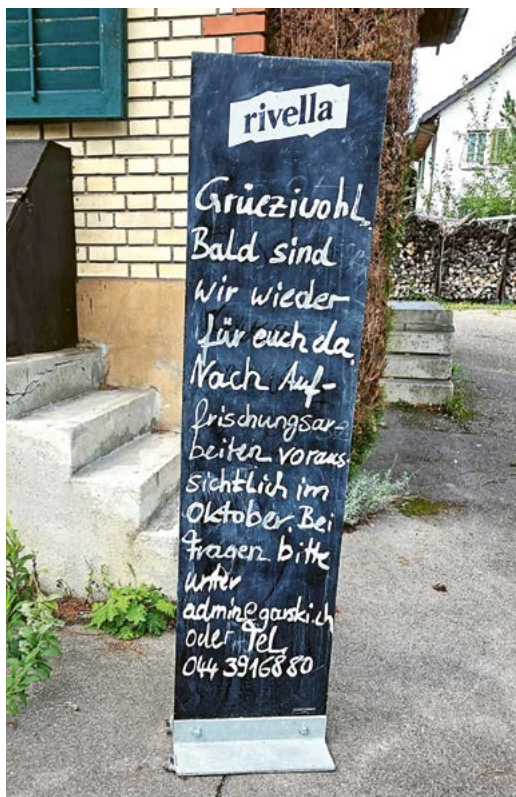 rivella
Grüeziwohl,
Bald sind
wir wieder
für euch da.
Nach Auf-
frischungsar-
beiten voraus-
sichtlich im
Oktober. Bei
Fragen bitte
unter
admin@garski.ch
oder Tel.
044 3916880